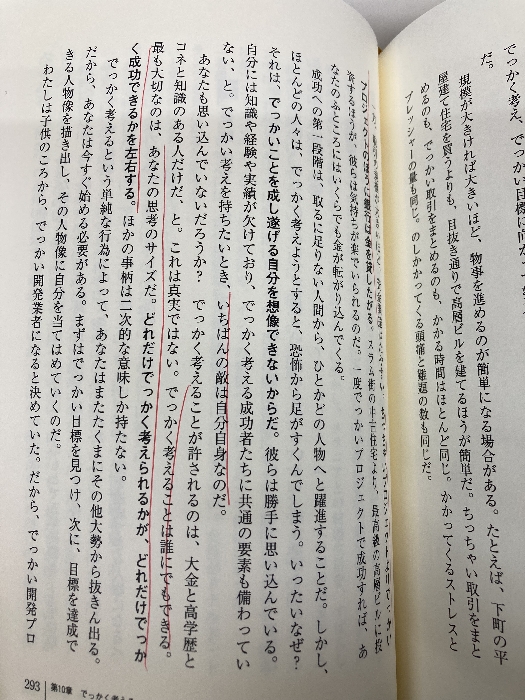 でっかく考え、でっかい目標に向か
だ。
規模が大きければ大きいほど、物事を進めるのが簡単になる場合がある。たとえば、下町の平
屋建て住宅を買うよりも、目抜き通りで高層ビルを建てるほうが簡単だ。ちっちゃい取引をまと
めるのも、でっかい取引をまとめるのも、かかる時間はほとんど同じ。かかってくるストレスと
プレッシャーの量も同じ。のしかかってくる頭痛と難題の数も同じだ。
プロジェクトのほうに銀行は金を貸したがる。スラム街の住宅より、最高級の高層ビルに投
資するほうが、彼らは気持ちが楽でいられるのだ。一度でっかいプロジェクトで成功すれば、あ
なたのふところにはいくらでも金が転がり込んでくる。
成功への第一段階は、取るに足りない人間から、ひとかどの人物へと躍進することだ。しかし、
ほとんどの人々は、でっかく考えようとすると、恐怖から足がすくんでしまう。いったいなぜ？
それは、でっかいことを成し遂げる自分を想像できないからだ。彼らは勝手に思い込んでいる。
自分には知識や経験や実績が欠けており、でっかく考える成功者たちに共通の要素も備わってい
ない、と。でっかい考えを持ちたいとき、いちばんの敵は自分自身なのだ。
あなたも思い込んでいないだろうか？　でっかく考えることが許されるのは、大金と高学歴と
コネと知識のある人だけだ、と。これは真実ではない。でっかく考えることは誰にでもできる。
最も大切なのは、あなたの思考のサイズだ。どれだけでっかく考えられるかが、どれだけでっか
く成功できるかを左右する。ほかの事柄は二次的な意味しか持たない。
でっかく考えるという単純な行為によって、あなたはまたたくまにその他大勢から抜きん出る。
だから、あなたは今すぐ始める必要がある。まずはでっかい目標を見つけ、次に、目標を達成で
きる人物像を描き出し、その人物像に自分を当てはめていくのだ。
わたしは子供のころから、でっかい開発業者になると決めていた。だから、でっかい開発プロ
293 第10章　でっかく考え